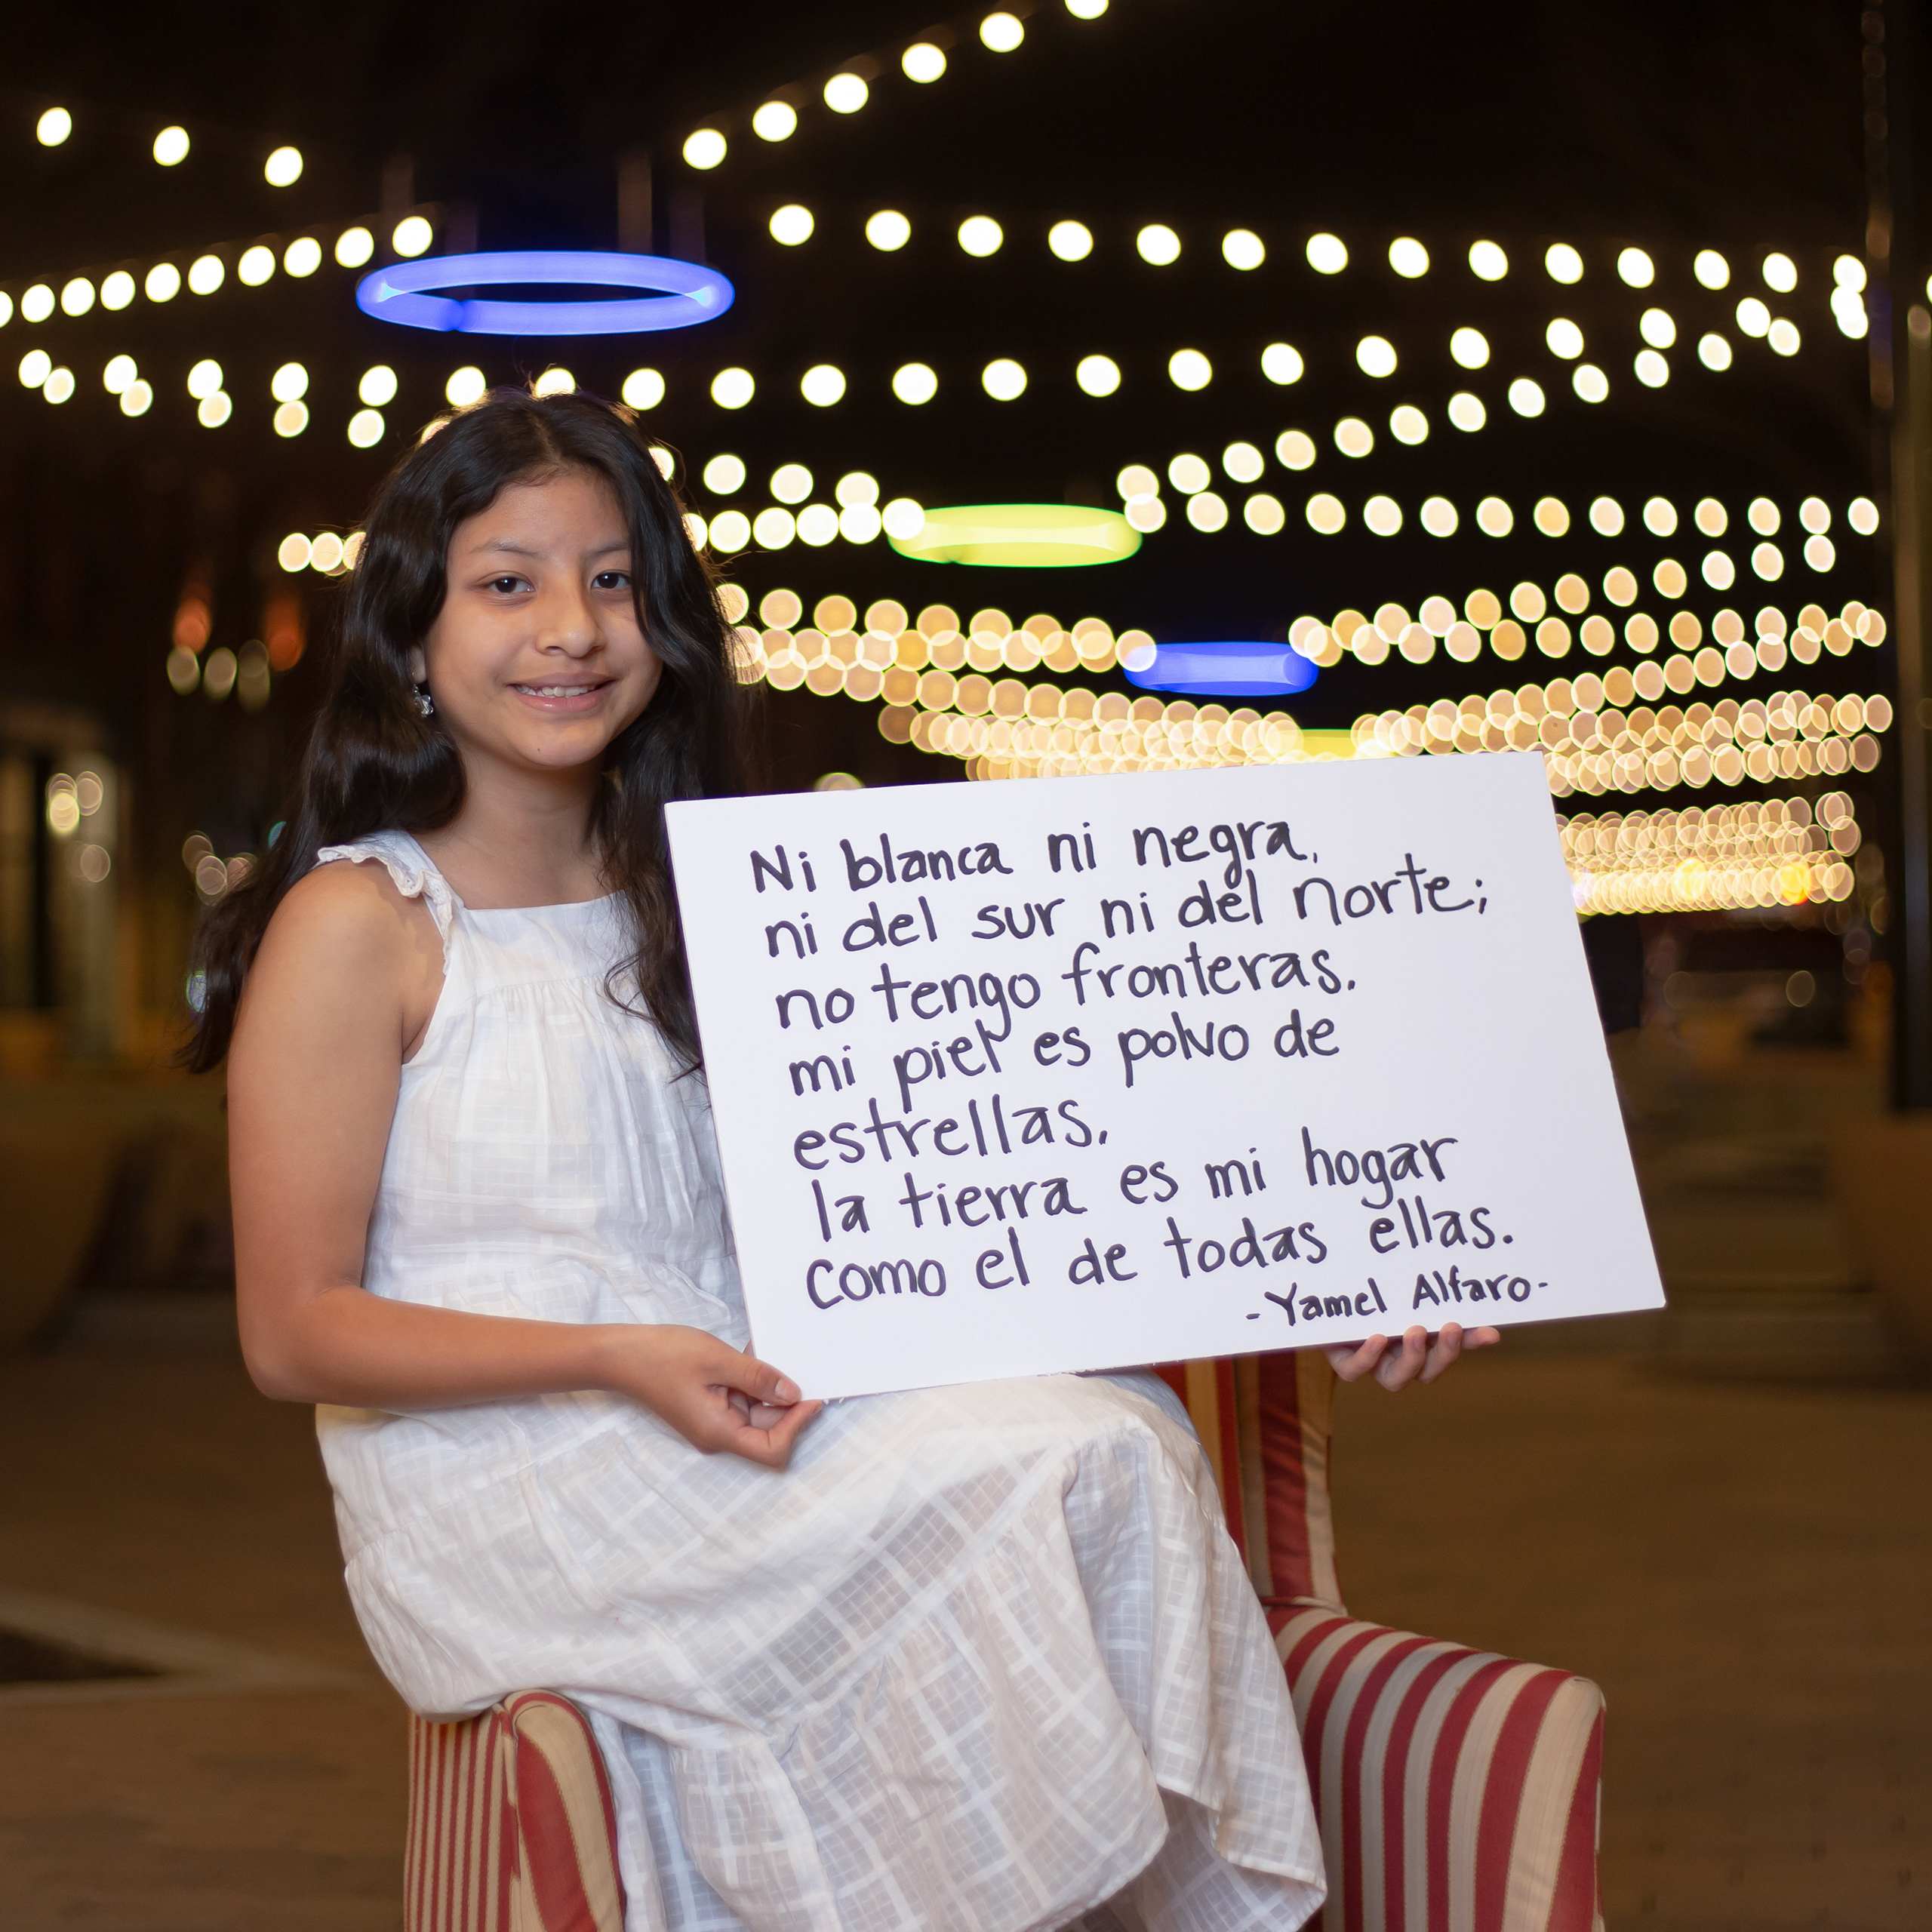 Ni blanca ni negra,
ni del sur ni del norte;
no tengo fronteras.
mi piel es polvo de
estrellas.
la tierra es mi hogar
como el de todas ellas.
-Yamel Alfaro-